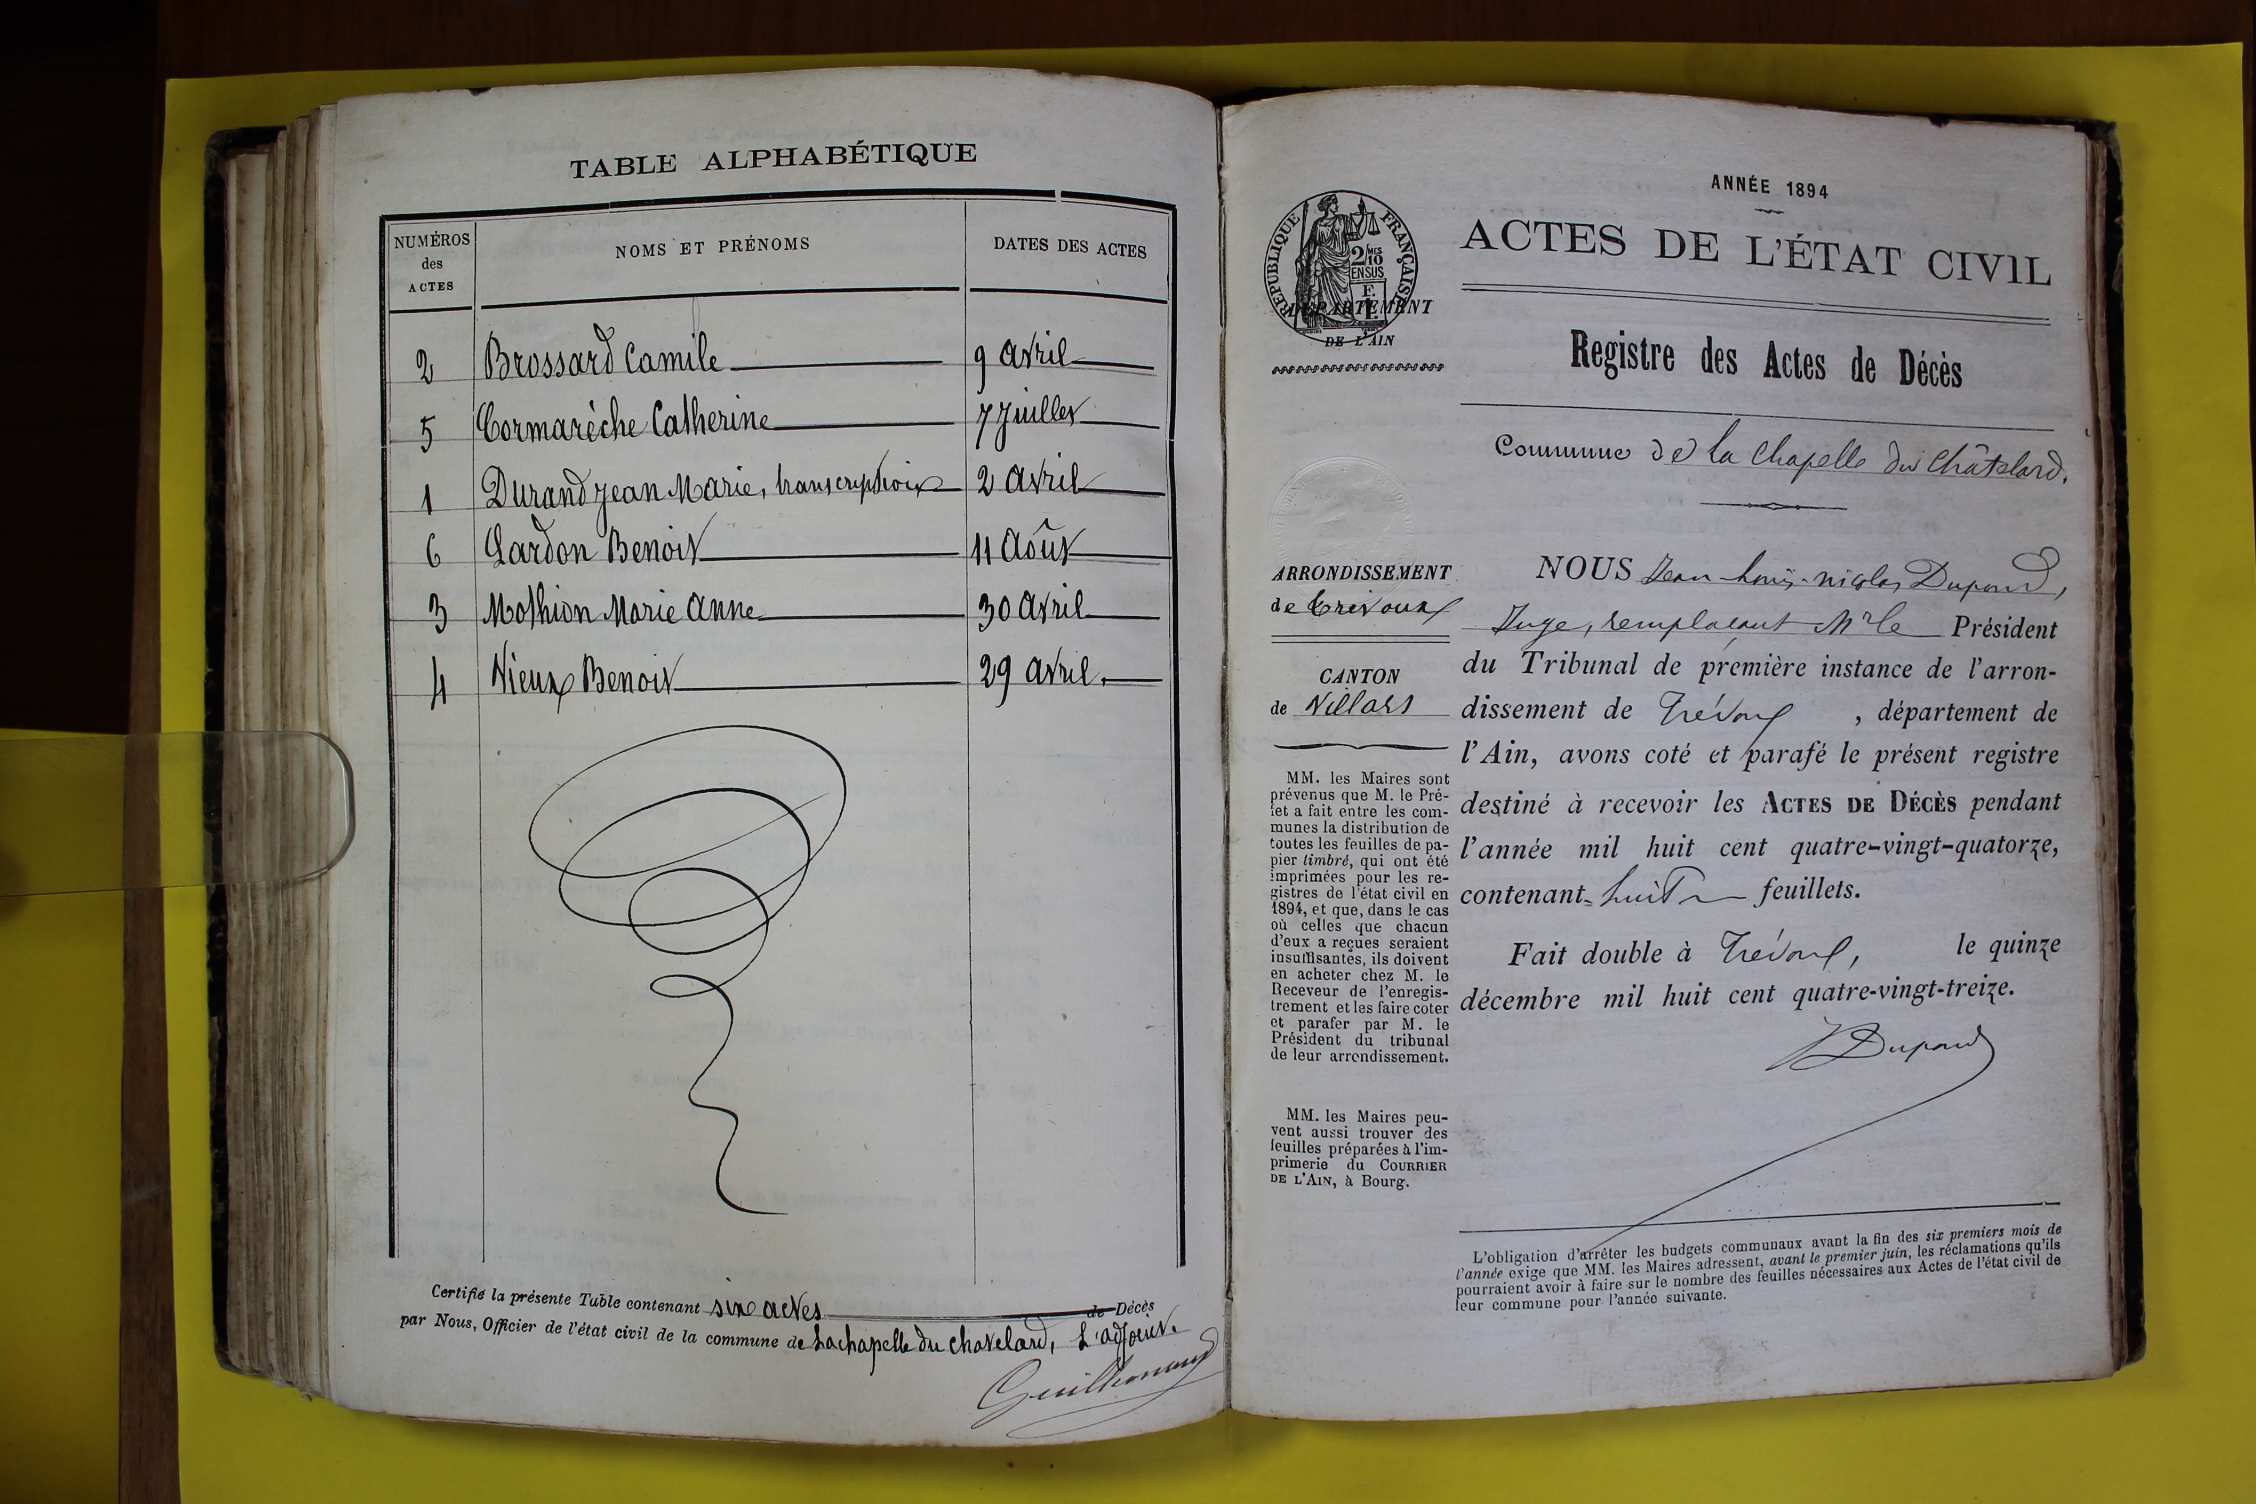 TABLE ALPHABÉTIQUE
NUMÉROS des ACTES
NOMS ET PRÉNOMS
DATES DES ACTES
2 Brossard Camile 9 avril
5 Cormarèche Catherine 7 Juillet
1 Durand Jean Marie, transcription 2 avril
6 Lardon Benoit 11 Août
3 Mothion Marie Anne 30 avril
4 Vieux Benoit 29 avril.
Certifié la présente Table contenant six actes de Décès
par Nous, Officier de l'état civil de la commune de Lachapelle du chatelard, L'adjoint.
ANNÉE 1894
RÉPUBLIQUE FRANÇAISE
2 MES 10 EN SUS
DÉPARTEMENT
DE L'AIN
ACTES DE L'ÉTAT CIVIL
Registre des Actes de Décès
Commune de la Chapelle du Châtelard.
ARRONDISSEMENT
de Trévoux
CANTON
de Villars
MM. les Maires sont
prévenus que M. le Pré-
fet a fait entre les com-
munes la distribution de
toutes les feuilles de pa-
pier timbré, qui ont été
imprimées pour les re-
gistres de l'état civil en
1894, et que, dans le cas
où celles que chacun
d'eux a reçues seraient
insuffisantes, ils doivent
en acheter chez M. le
Receveur de l'enregis-
trement et les faire coter
et parafer par M. le
Président du tribunal
de leur arrondissement.
MM. les Maires peu-
vent aussi trouver des
feuilles préparées à l'im-
primerie du COURRIER
DE L'AIN, à Bourg.
NOUS Jean-Louis-Nicolas Dupond,
Juge, remplaçant Mr le Président
du Tribunal de première instance de l'arron-
dissement de Trévoux, département de
l'Ain, avons coté et parafé le présent registre
destiné à recevoir les ACTES DE DÉCÈS pendant
l'année mil huit cent quatre-vingt-quatorze,
contenant huit feuillets.
Fait double à Trévoux, le quinze
décembre mil huit cent quatre-vingt-treize.
Dupond
L'obligation d'arrêter les budgets communaux avant la fin des six premiers mois de
l'année exige que MM. les Maires adressent, avant le premier juin, les réclamations qu'ils
pourraient avoir à faire sur le nombre des feuilles nécessaires aux Actes de l'état civil de
leur commune pour l'année suivante.